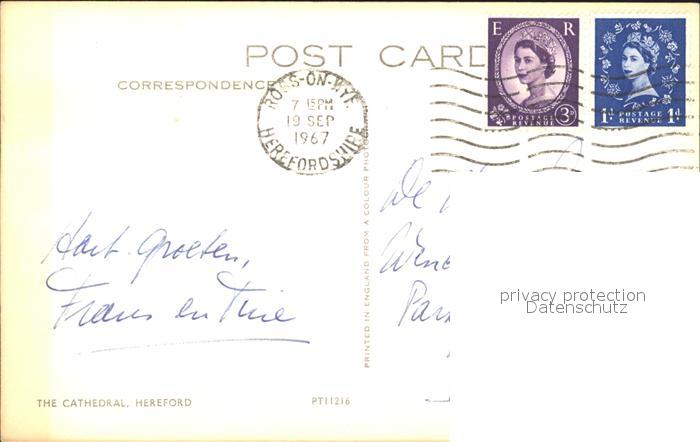 POST CARD
CORRESPONDENCE
ROSS-ON-WYE
7 15PM
19 SEP
1967
HEREFORDSHIRE
E R
POSTAGE
REVENUE
3D
1D POSTAGE 1D
REVENUE
Hart. groeten,
Frans en Tine
PRINTED IN ENGLAND FROM A COLOUR PHOTO
De
privacy protection
Datenschutz
THE CATHEDRAL, HEREFORD
PT11216